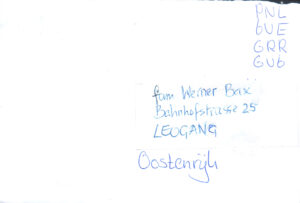 PNL
6UE
GRR
GV6
fam Werner Bax
Bahnhofstrasse 25
LEOGANG
Oostenrijk